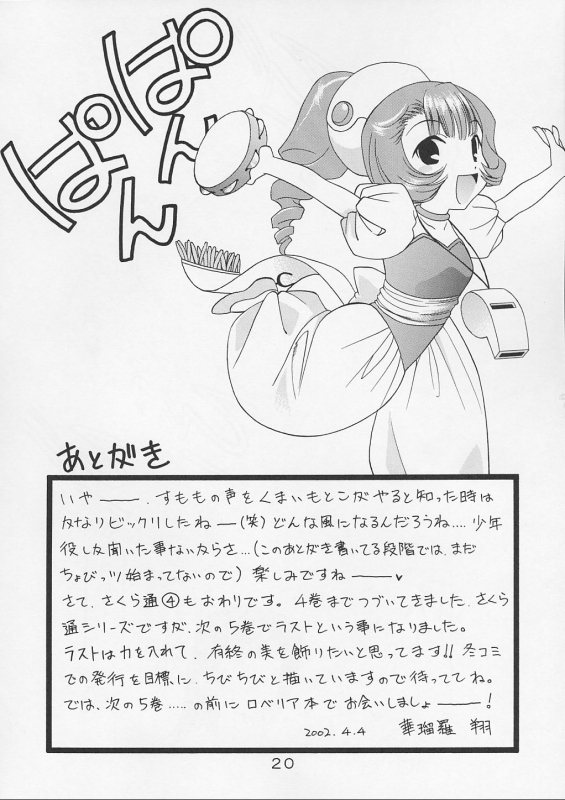 ぱんぱん
あとがき
いやー―、すももの声をくまいもとこがやると知った時は
かなりビックリしたねー(笑)どんな風になるんだろうね‥‥少年
役しか聞いた事ないからさ…(このあとがき書いてる段階では、まだ
ちょびっツ始まってないので)楽しみですねー――♥
さて、さくら通④もおわりです。4巻までつづいてきました、さくら
通シリーズですが、次の5巻でラストという事になりました。
ラストは力を入れて、有終の美を飾りたいと思ってます!!冬コミ
での発行を目標に、ちびちびと描いていますので待っててね。
では、次の5巻‥‥‥の前にロベリア本でお会いしましょー――!
2002.4.4 華瑠羅 翔
20